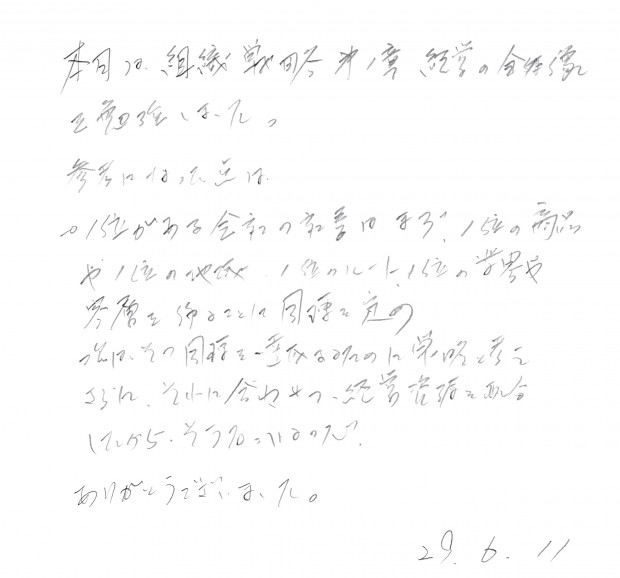 本日は、組織戦略第1章 経営の全体像
を勉強しました。
参考になった点は、
1位がある会社の社長はまず、1位の商品
や1位の地域、1位のルート、1位の業界や
客層を作ることに目標を定め
次に、その目標を達成するために戦略を考え
さらに、それに合わせて、経営資源を配分
したから、そうなっているのだ。
ありがとうございました。
29. 6. 11